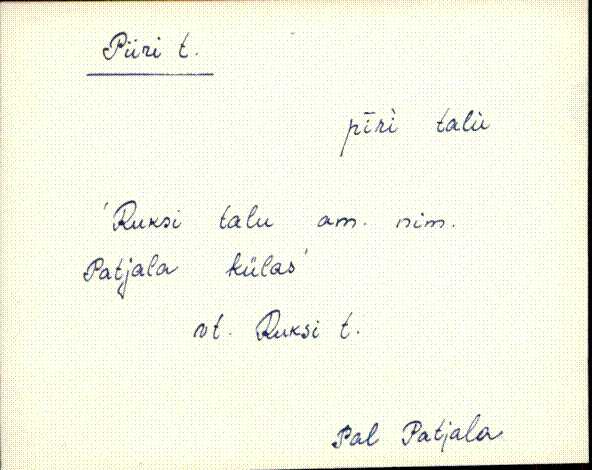 Piiri t.
pīrì talù
'Ruksi talu am. nim.
Patjala külas'
vt. Ruksi t.
Pal Patjala